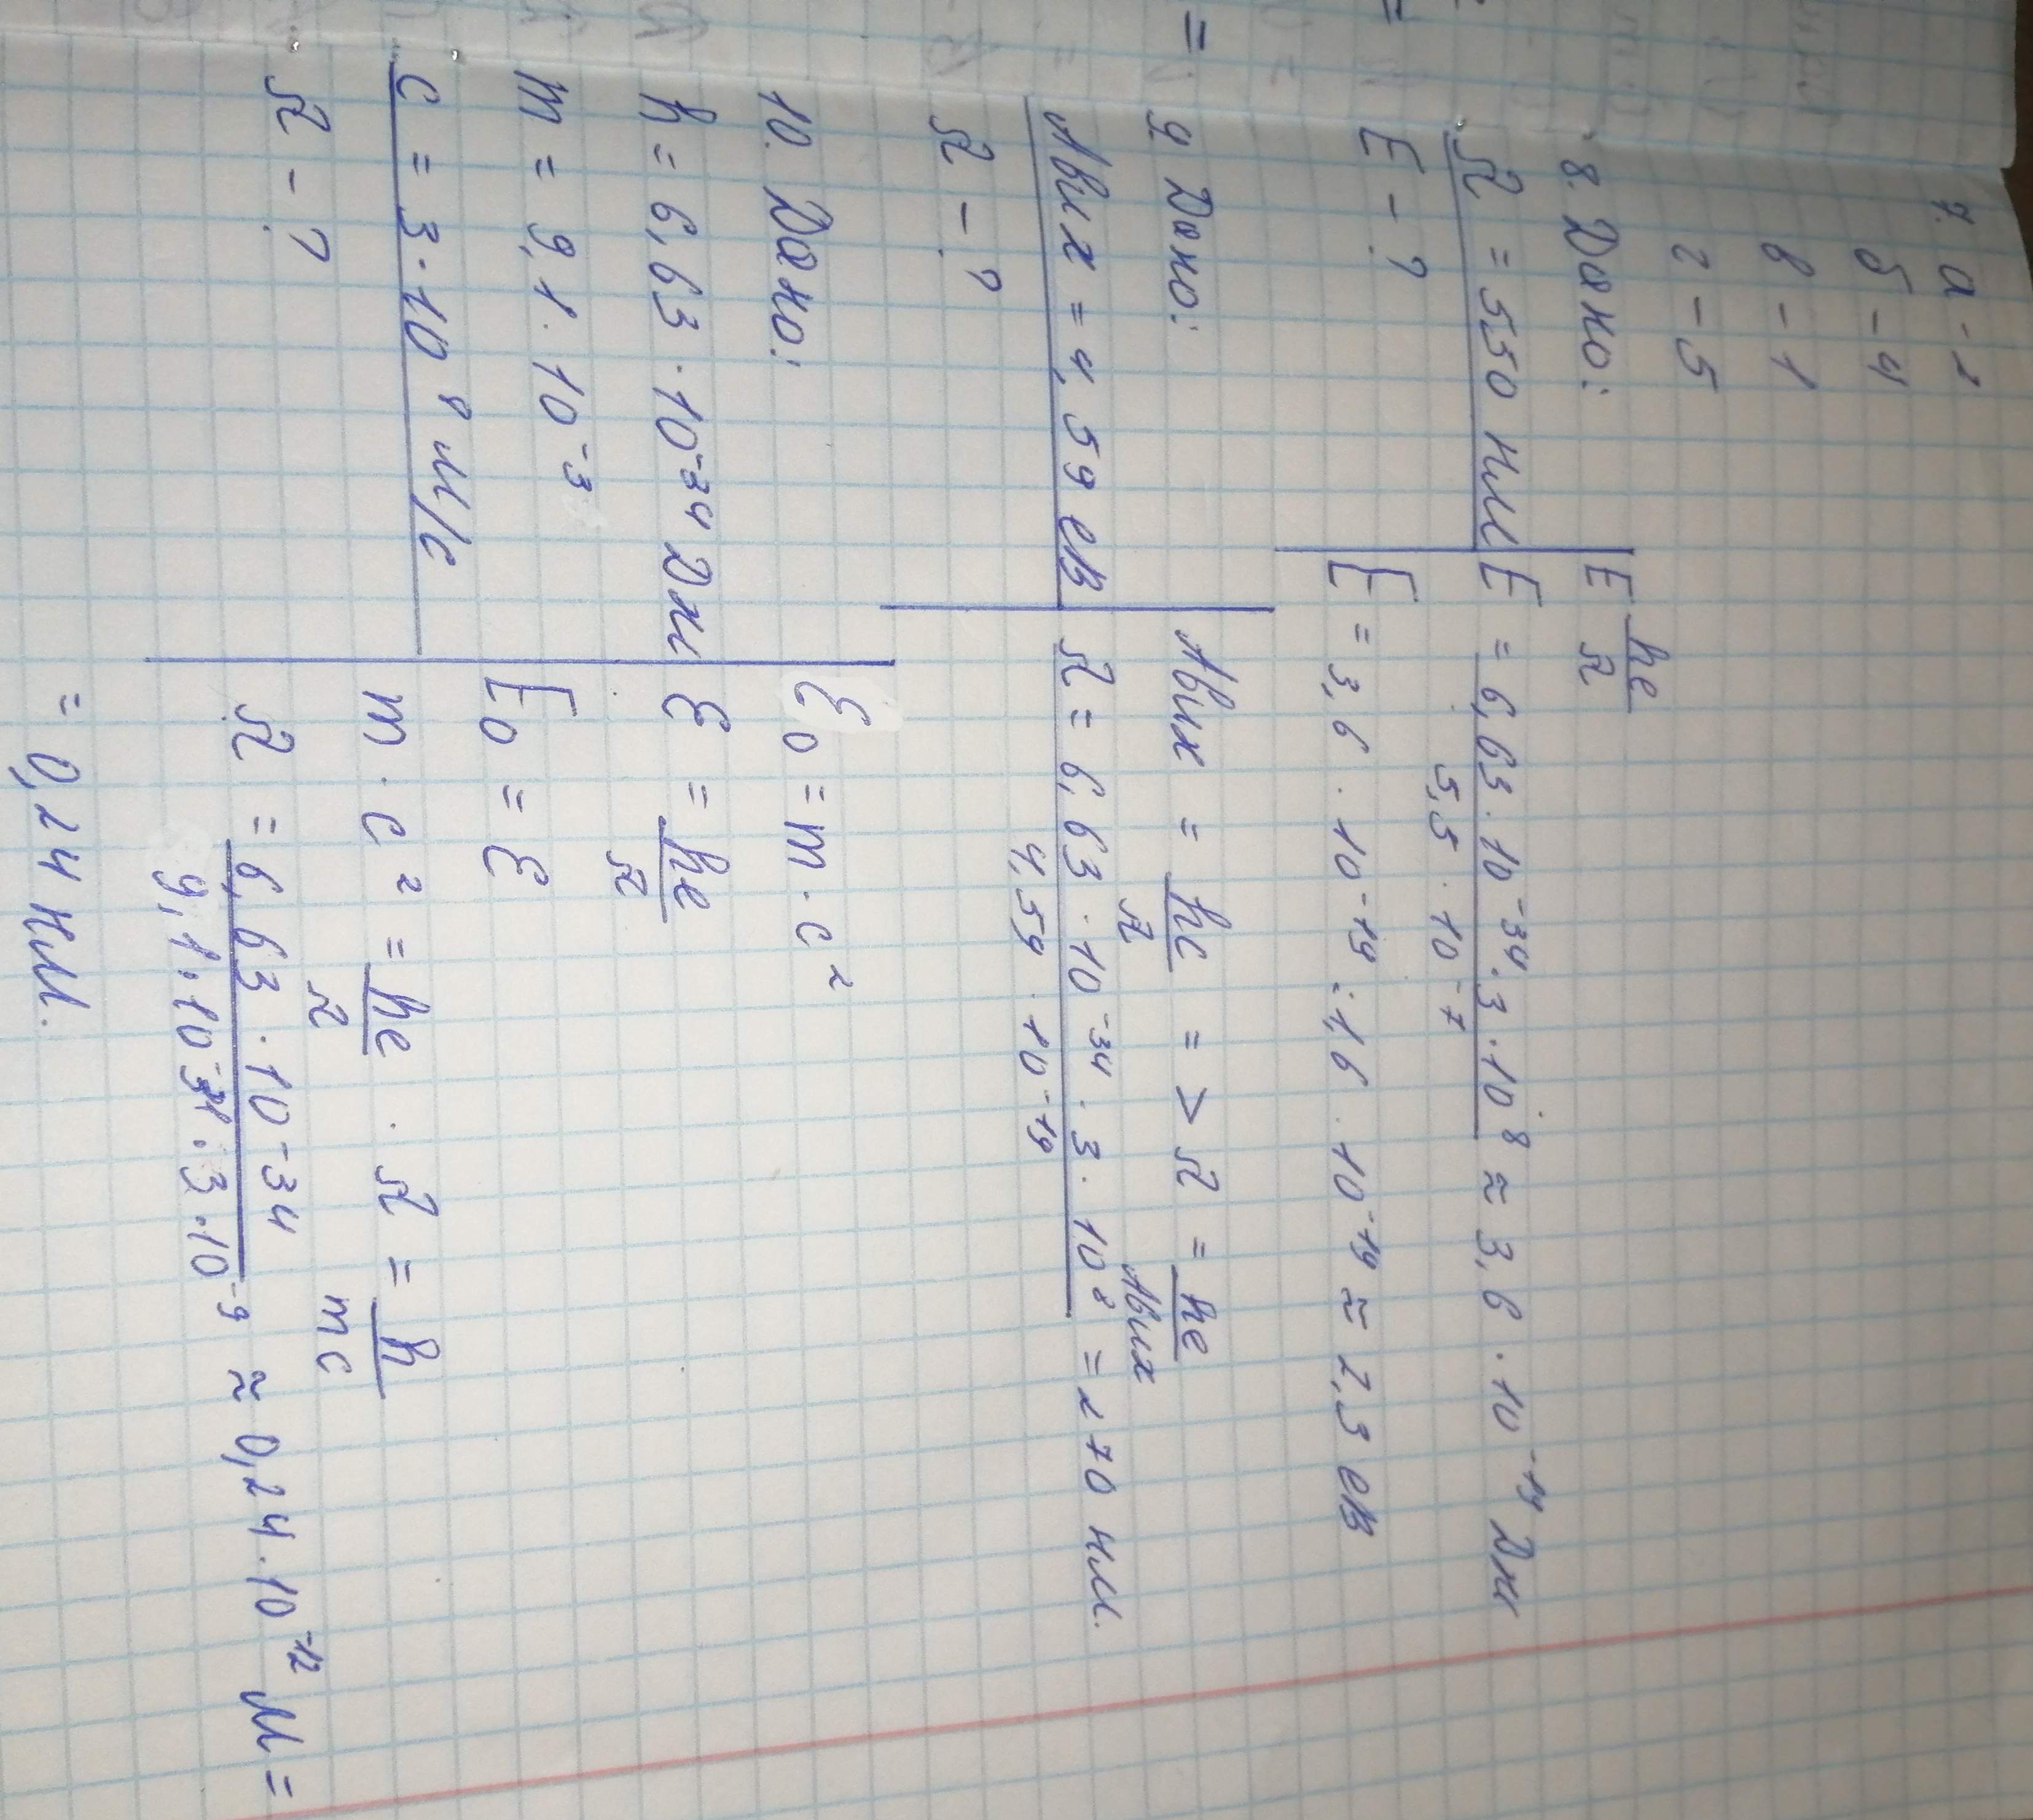 7. а - 2
б - 4
в - 1
г - 5
8. Дано:
λ = 550 нм
E - ?
E hc/λ
E = 6,63 · 10⁻³⁴ · 3 · 10⁸ / 5,5 · 10⁻⁷ ≈ 3,6 · 10⁻¹⁹ Дж
E = 3,6 · 10⁻¹⁹ : 1,6 · 10⁻¹⁹ ≈ 2,3 еВ
9 Дано:
Aвих = 4,59 еВ
λ - ?
Aвих = hc/λ => λ = hc/Aвих
λ = 6,63 · 10⁻³⁴ · 3 · 10⁸ / 4,59 · 10⁻¹⁹ = 270 нм.
10. Дано:
h = 6,63 · 10⁻³⁴ Дж
m = 9,1 · 10⁻³
c = 3 · 10⁸ м/с
λ - ?
ℰ₀ = m · c²
ℰ = hc/λ
E₀ = ℰ
m · c² = hc/λ · λ = h/mc
λ = 6,63 · 10⁻³⁴ / 9,1 · 10⁻³¹ · 3 · 10⁻⁹ ≈ 0,24 · 10⁻¹² м =
= 0,24 нм.